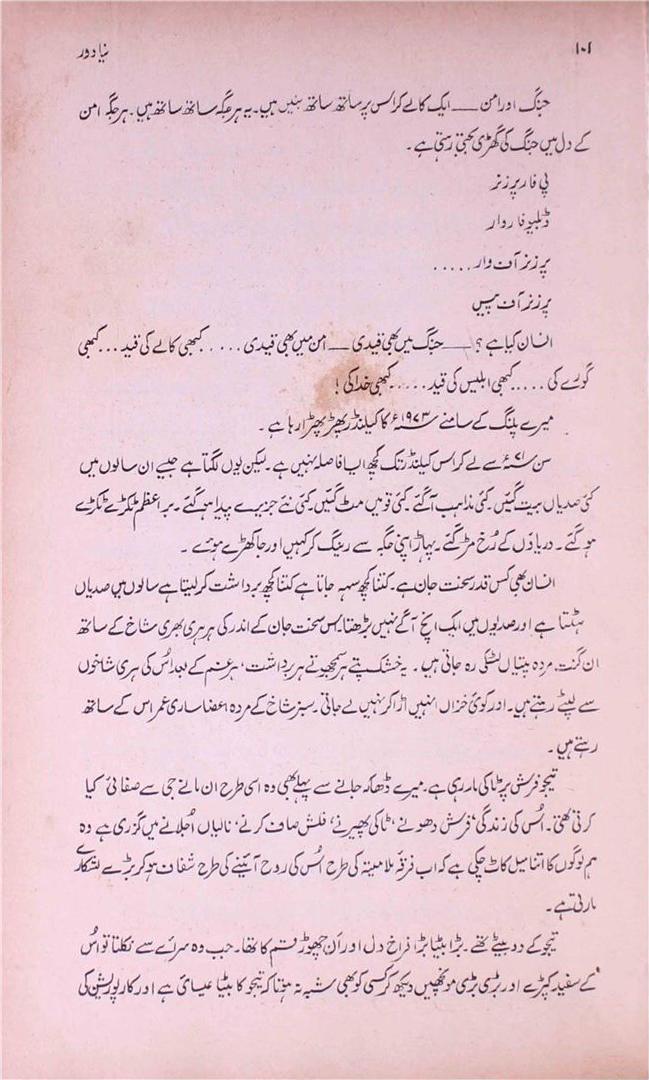 ۱۰۲
نیا دور
جنگ اور امن — ایک کالے کراس پر ساتھ ساتھ ہیں۔ یہ ہر جگہ ساتھ ساتھ ہیں۔ ہر جگہ امن
کے دل میں جنگ کی گھڑی بجتی رہتی ہے۔
پی فار پرزنر
ڈبلیو فار وار
پرزنر آف وار .....
پرزنر آف پیس
انسان کیا ہے؟ — جنگ میں بھی قیدی — امن میں بھی قیدی ..... کبھی کالے کی قید ... کبھی
گورے کی .... کبھی ابلیس کی قید ..... کبھی خدا کی!
میرے پلنگ کے سامنے ۱۹۷۳ء کا کیلنڈر پھڑپھڑا رہا ہے۔
سن ۷۱ء سے لے کر اس کیلنڈر تک کچھ ایسا فاصلہ نہیں ہے۔ لیکن یوں لگتا ہے جیسے ان سالوں میں
کئی صدیاں بیت گئیں۔ کئی مذاہب آ گئے۔ کئی قومیں مٹ گئیں۔ کئی نئے جزیرے پیدا ہو گئے۔ براعظم ٹکڑے ٹکڑے
ہو گئے۔ دریاؤں کے رخ مڑ گئے۔ پہاڑ اپنی جگہ سے رینگ کر کہیں اور جا کھڑے ہوئے۔
انسان بھی کس قدر سخت جان ہے۔ کتنا کچھ سہہ جاتا ہے کتنا کچھ برداشت کر لیتا ہے سالوں میں صدیاں
ہٹتا ہے اور صدیوں میں ایک انچ آگے نہیں بڑھتا۔ بس سخت جان کے اندر کی ہر ہری بھری شاخ کے ساتھ
ان گنت مردہ پتیاں لٹکی رہ جاتی ہیں۔ یہ خشک پتے ہر سمجھوتے ہر برداشت، ہر غم کے بعد اُس کی ہری شاخوں
سے لپٹے رہتے ہیں۔ اور کوئی خزاں انہیں اڑا کر نہیں لے جاتی۔ سبز شاخ کے مردہ اعضا ساری عمر اس کے ساتھ
رہتے ہیں۔
تیجو فرش پر ٹاکی مار رہی ہے۔ میرے ڈھاکہ جانے سے پہلے بھی وہ اسی طرح ان مانے جی سے صفائی کیا
کرتی تھی۔ اُس کی زندگی فرش دھونے، ٹاکی پھیرنے، فلش صاف کرنے، نالیاں اُجلانے میں گزری ہے وہ
ہم لوگوں کا اتنا میل کاٹ چکی ہے کہ اب فرقہ ملامتیہ کی طرح اُس کی روح آئینے کی طرح شفاف ہو کر بڑے لشکارے
مارتی ہے۔
تیجو کے دو بیٹے تھے۔ بڑا بیٹا بڑا فراخ دل اور ان چھوڑ قسم کا تھا۔ جب وہ سرائے سے نکلتا تو اُس
کے سفید کپڑے اور بڑی بڑی مونچھیں دیکھ کر کسی کو بھی شبہ نہ ہوتا کہ تیجو کا بیٹا عیسائی ہے اور کارپوریشن کی